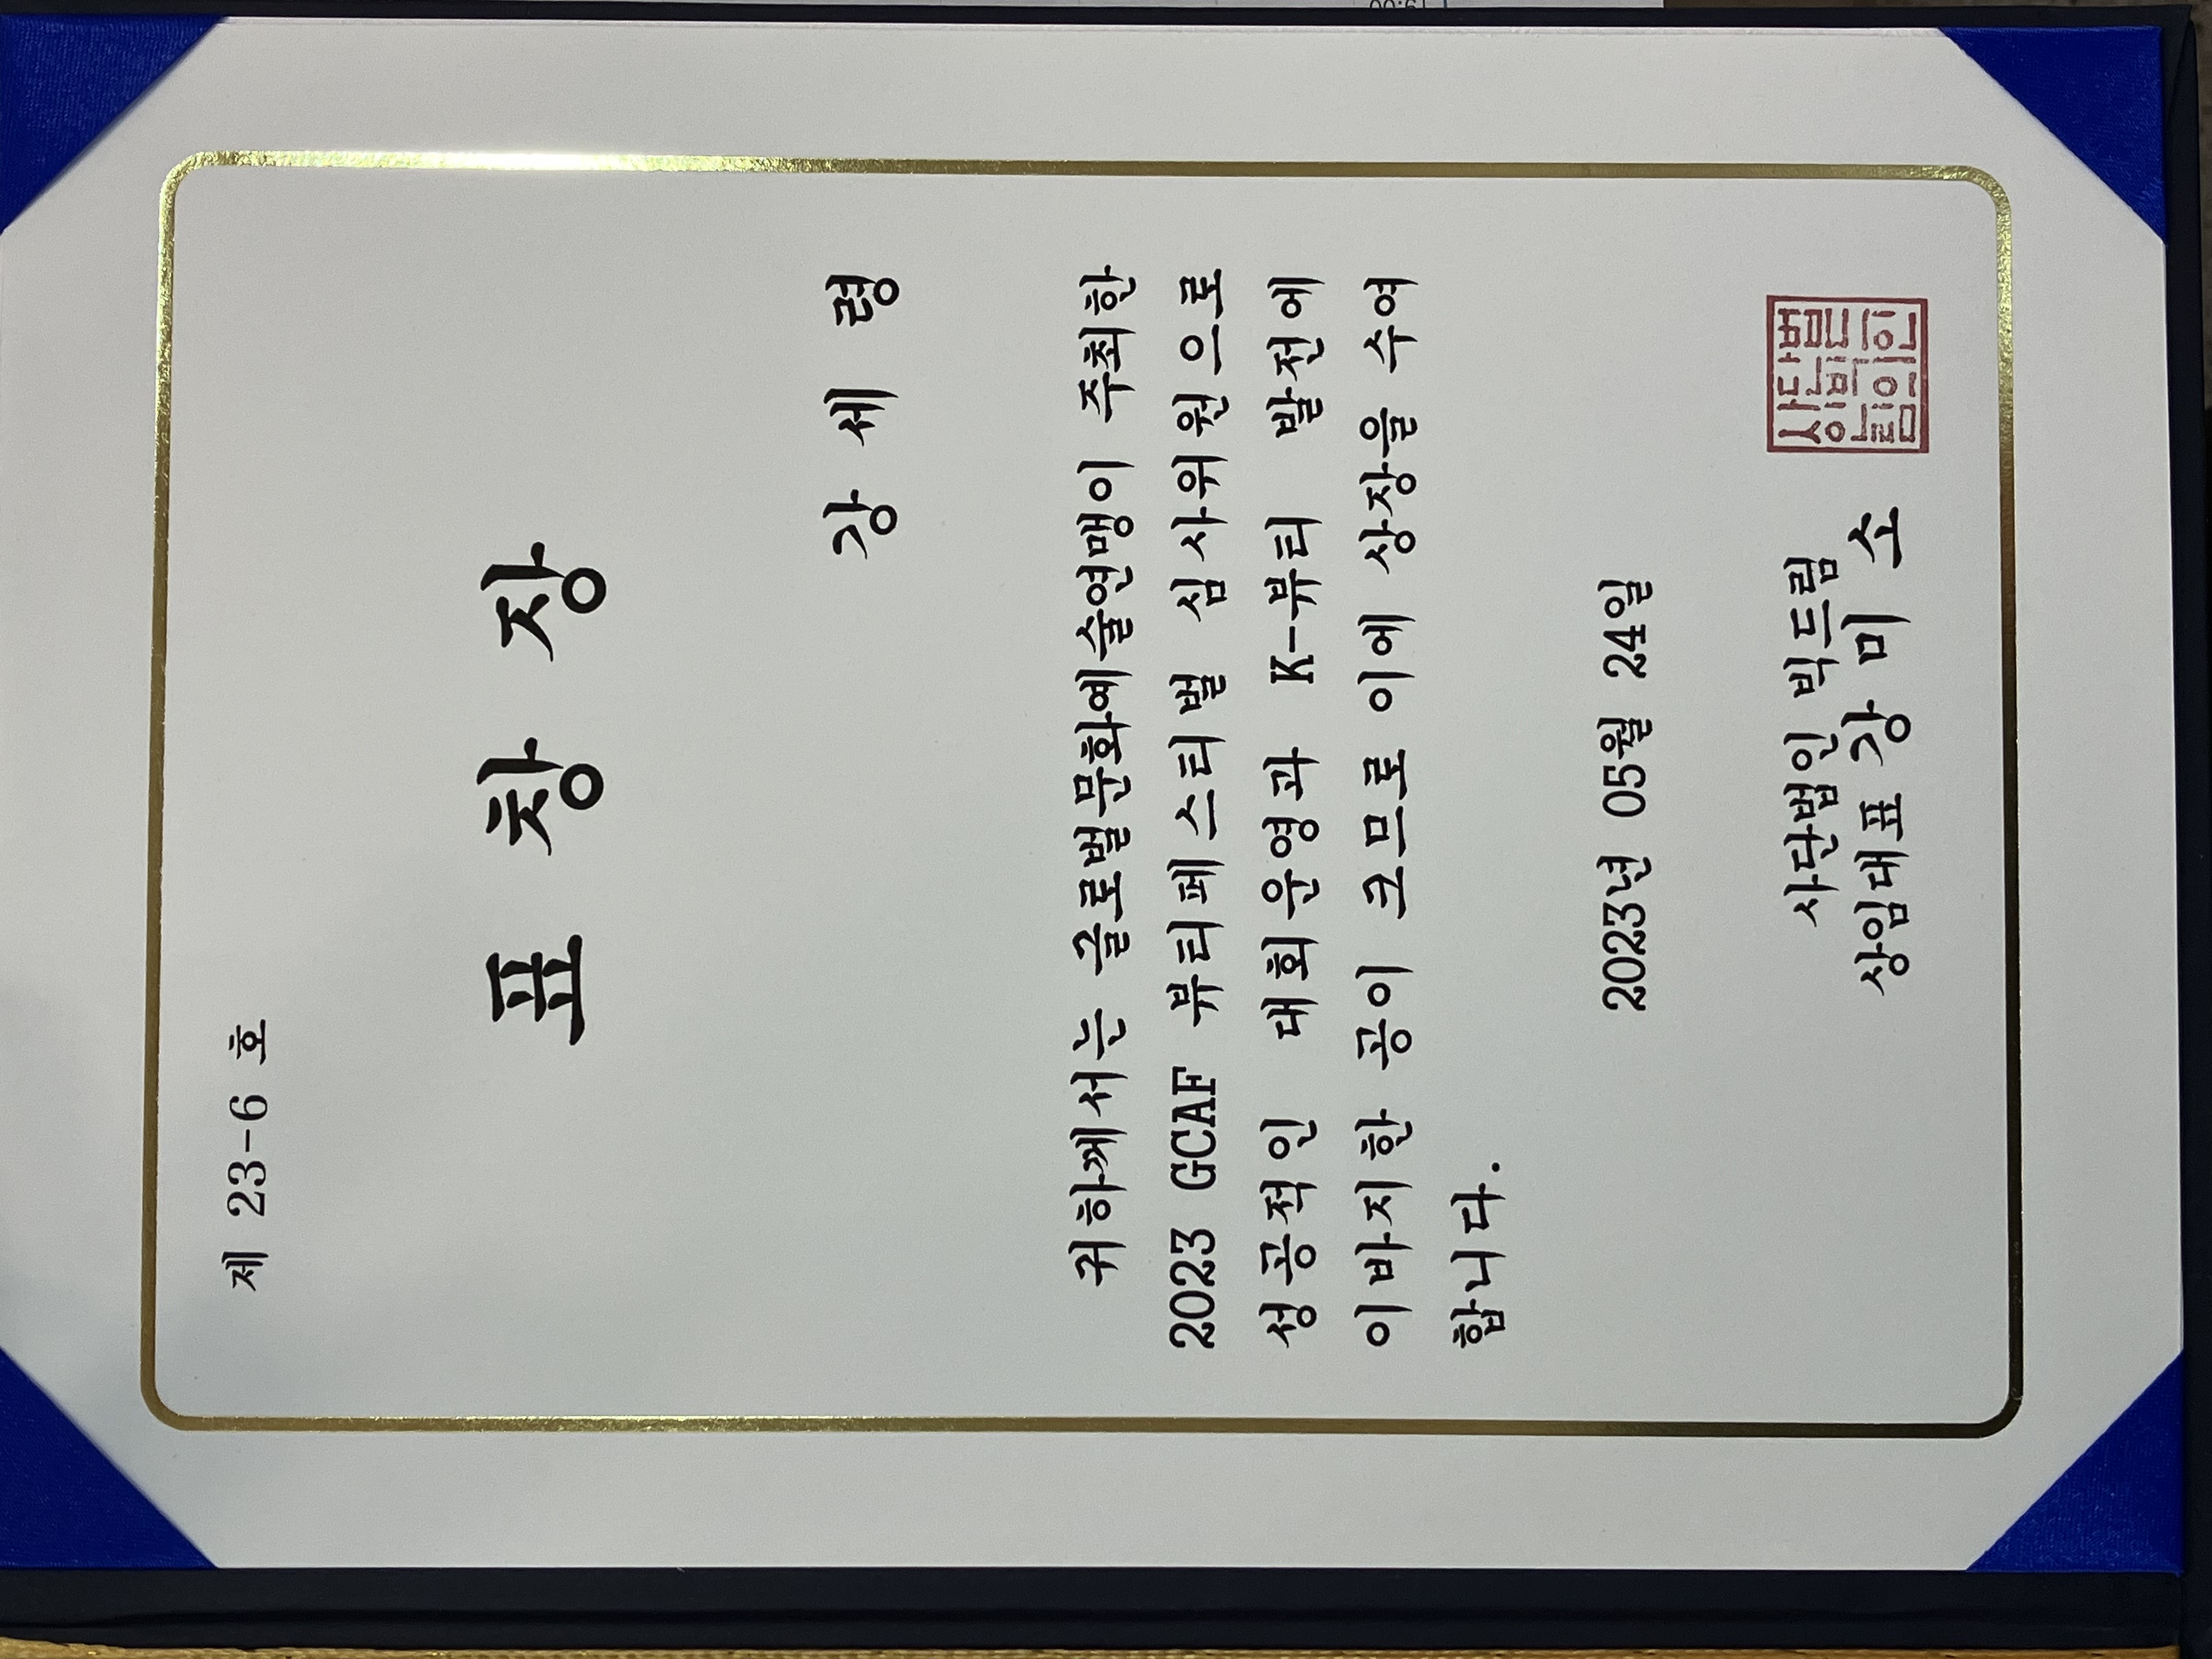 제 23-6 호
표 창 장
강 세 령
귀하께서는 글로벌문화예술연맹이 주최한
2023 GCAF 뷰티페스티벌 심사위원으로
성공적인 대회운영과 K-뷰티 발전에
이바지한 공이 크므로 이에 상장을 수여
합니다.
2023년 05월 24일
사단법인 빅드림
상임대표 강 미 소